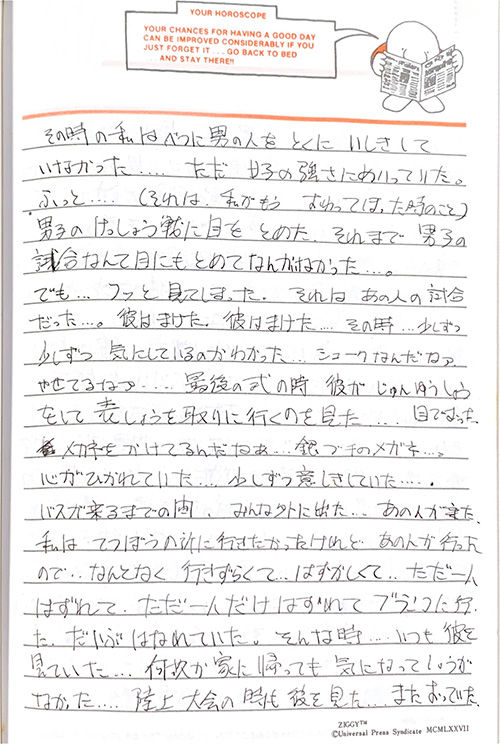 YOUR HOROSCOPE
YOUR CHANCES FOR HAVING A GOOD DAY
CAN BE IMPROVED CONSIDERABLY IF YOU
JUST FORGET IT . . . GO BACK TO BED
AND STAY THERE!!
その時の私はべつに男の人を とくに いしきして
いなかった…. ただ 女子の強さにめいっていた。
ふっと…. (それは、私がもう すわってしまった時のこと)
男子の けっしょう戦に目を とめた. それまで 男子の
試合なんて目にもとめてなんかいなかった…。
でも… フッと 見てしまった. それは あの人の試合
だった…。彼はまけた. 彼はまけた… その時…少しずつ
少しずつ 気にしているのがわかった… シュークなんだねァ
やせてるなァ…. 最後の式の時 彼が じゅんゆうしょう
をして 表しょうを取りに行くのを見た…. 目でおった.
メガネをかけてるんだなぁ…銀ブチのメガネ…。
心がひかれていた… 少しずつ意しきしていた….
バスが来るまでの間、みんな外に出た… あの人が来た.
私は てつぼうの所に行きたかったけれど あの人が行った
ので・・なんとなく 行きずらくて…はずかしくて‥ ただ一人
はずれて. ただ一人だけ はずれて ブランコに行っ
た. だいぶはなれていた。そんな時…. いつも 彼を
見ていた… 何故か家に帰っても 気になってしょうが
なかった…. 陸上大会の時も 彼を見た… またおっていた.
ZIGGY™
©Universal Press Syndicate MCMLXXVII